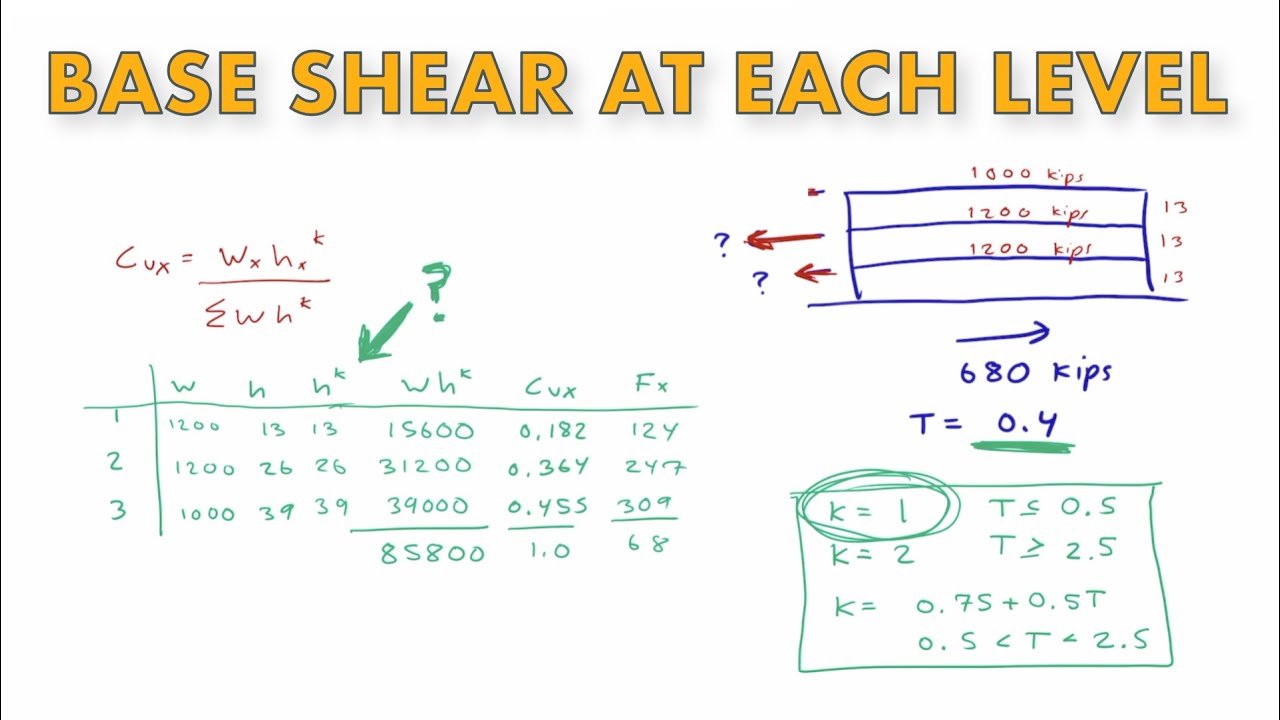 BASE SHEAR AT EACH LEVEL
1000 kips
1200 kips
1200 kips
13
13
13
?
?
Cvx = Wx hx^k
Σwh^k
?
680 kips
T = 0.4
w h h^k wh^k Cvx Fx
1 1200 13 13 15600 0.182 124
2 1200 26 26 31200 0.364 247
3 1000 39 39 39000 0.455 309
85800 1.0 68
k = 1 T ≤ 0.5
k = 2 T ≥ 2.5
k = 0.75 + 0.5T
0.5 < T < 2.5